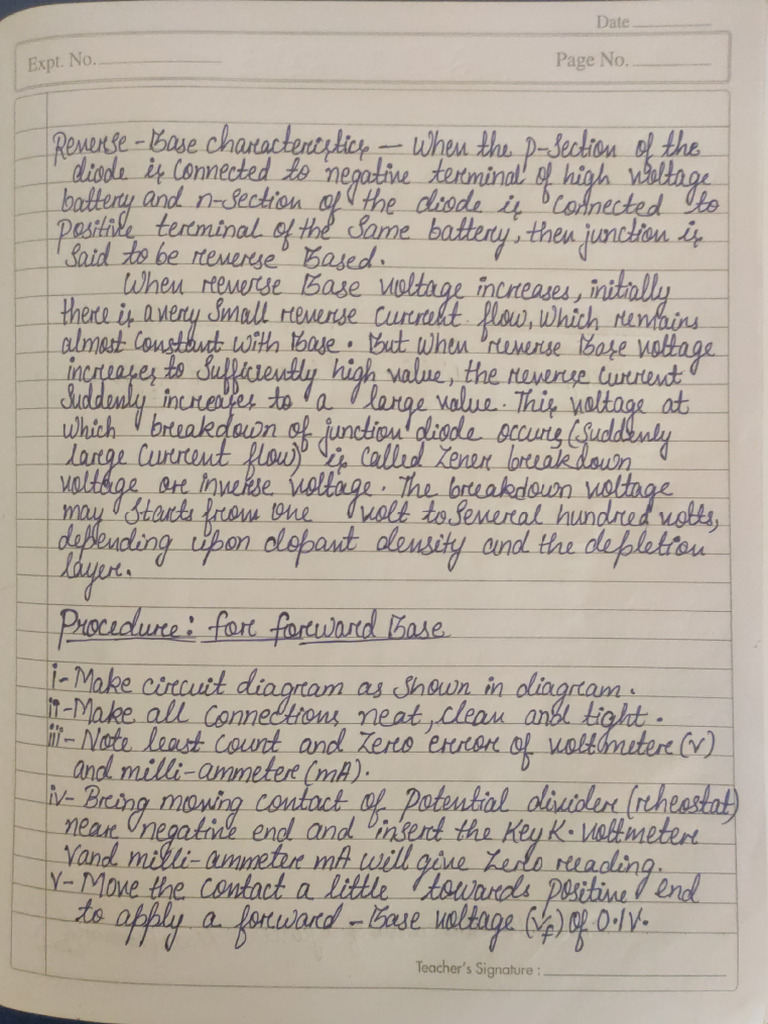 Date
Expt. No.
Page No.
Reverse-Base characteristics — When the p-Section of the
diode is connected to negative terminal of high voltage
battery and n-Section of the diode is connected to
Positive terminal of the Same battery, then junction is
Said to be reverse Based.
When reverse Base voltage increases, initially
there is a very Small reverse Current flow, Which remains
almost Constant With Base. But When reverse Base voltage
increases to Sufficiently high value, the reverse Current
Suddenly increases to a large value. This voltage at
which breakdown of junction diode occurs (Suddenly
large Current flow) is Called Zener breakdown
voltage or inverse voltage. The breakdown voltage
may Starts from one volt to Several hundred volts,
depending upon dopant density and the depletion
layer.
Procedure: for forward Base
i- Make circuit diagram as Shown in diagram.
ii- Make all Connections neat, clean and tight.
iii- Note least Count and Zero error of voltmeter (V)
and milli-ammeter (mA).
iv- Bring moving contact of Potential divider (rheostat)
near negative end and insert the Key K. voltmeter
V and milli-ammeter mA will give Zero reading.
v- Move the contact a little towards positive end
to apply a forward - Base voltage (Vf) of 0.1V.
Teacher's Signature :